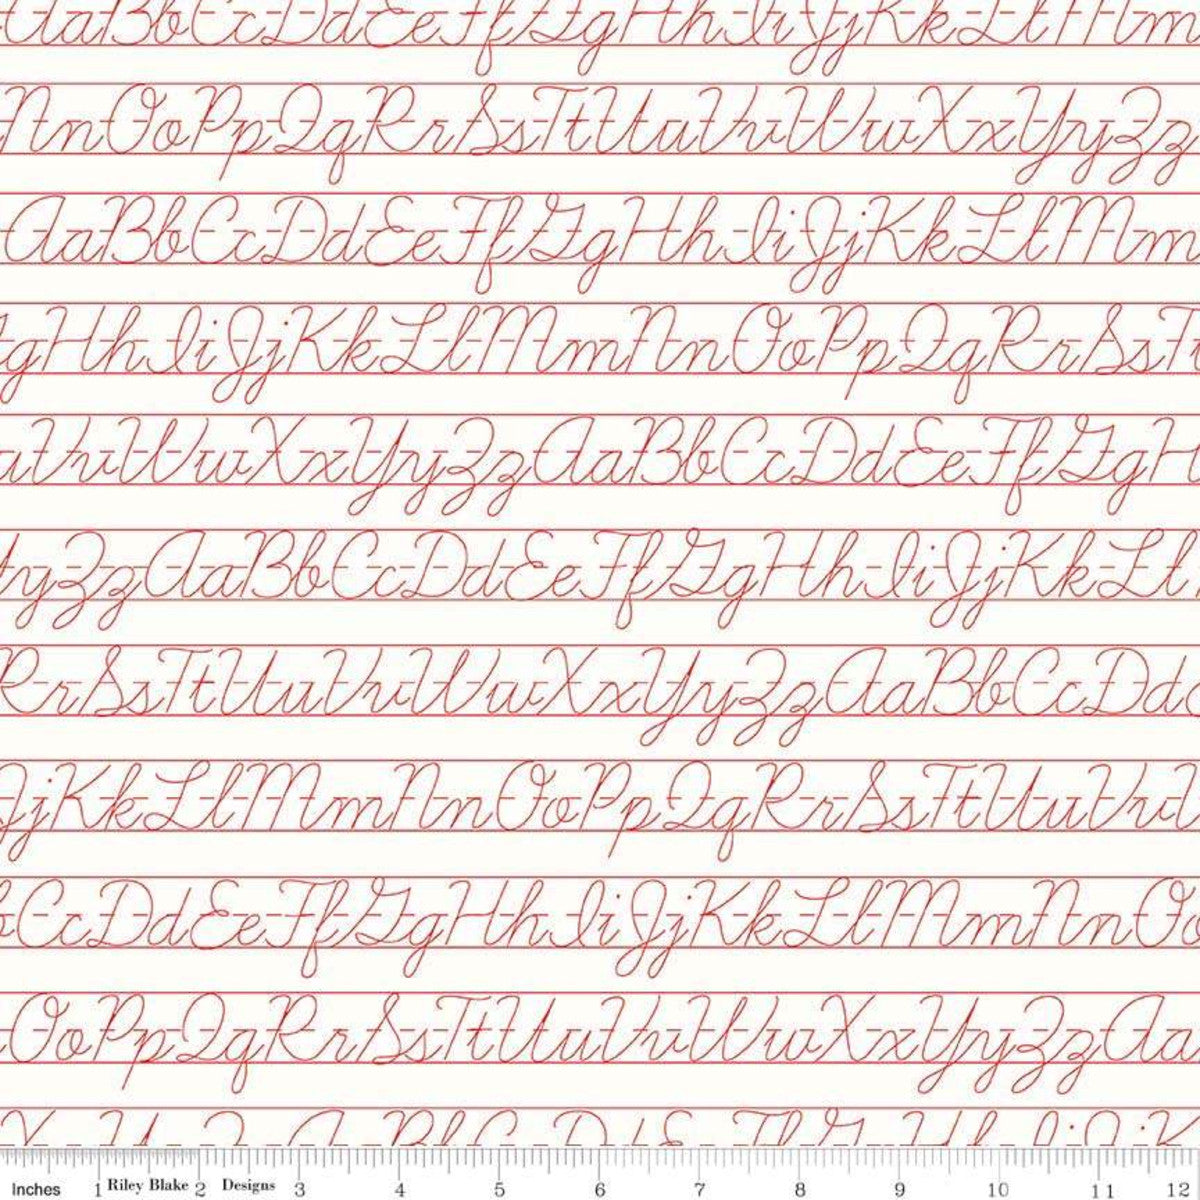 AaBbCcDdEeFfGgHhIiJjKkLlMm
NnOoPpQqRrSsTtUuVvWwXxYyZz
AaBbCcDdEeFfGgHhIiJjKkLlMm
gHhIiJjKkLlMmNnOoPpQqRrSsTt
uVvWwXxYyZzAaBbCcDdEeFfGgH
YyZzAaBbCcDdEeFfGgHhIiJjKkLl
RrSsTtUuVvWwXxYyZzAaBbCcDd
JjKkLlMmNnOoPpQqRrSsTtUuVv
bCcDdEeFfGgHhIiJjKkLlMmNnOo
OoPpQqRrSsTtUuVvWwXxYyZzAa
X Y Z A B b C D d E F f G H h I i J j K
Inches 1 Riley Blake 2 Designs 3 4 5 6 7 8 9 10 11 12